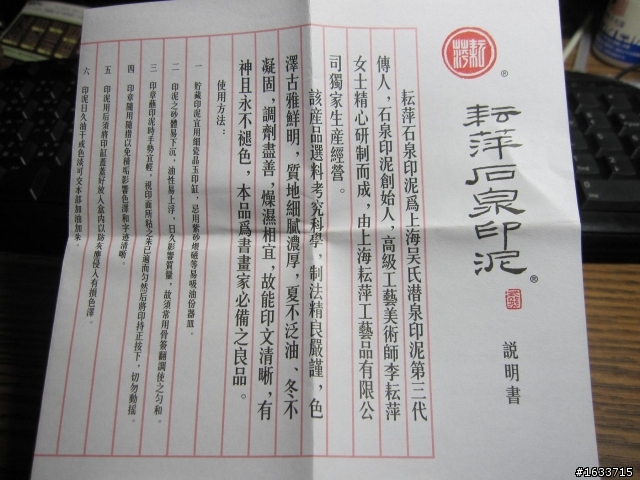 耘萍
®
耘萍石泉印泥
®
説明書
耘萍石泉印泥爲上海吴氏潜泉印泥第三代
傳人，石泉印泥創始人，高級工藝美術師李耘萍
女士精心研制而成，由上海耘萍工藝品有限公
司獨家生産經營。
該産品選料考究科學，制法精良嚴謹，色
澤古雅鮮明，質地細膩濃厚，夏不泛油、冬不
凝固，調劑盡善，燥濕相宜，故能印文清晰，有
神且永不褪色，本品爲書畫家必備之良品。
使用方法：
一 貯藏印泥宜用細瓷晶玉印缸，忌用紫砂燈礅等易吸油份器皿。
二 印泥之砂體易下沉，油性易上浮，日久影響質量，故須常用骨簽翻調使之匀和。
三 印章蘸印泥時手勢宜輕，視印面所粘之朱已適而匀然后將印持正按下，切勿動摇。
四 印章隨用隨揩以免積垢影響色澤和字迹清晰。
五 印泥用后須將印缸蓋蓋好放入盒内以防灰塵侵入有損色澤。
六 印泥日久油干或色淡可交本部加油加朱。
#1633715